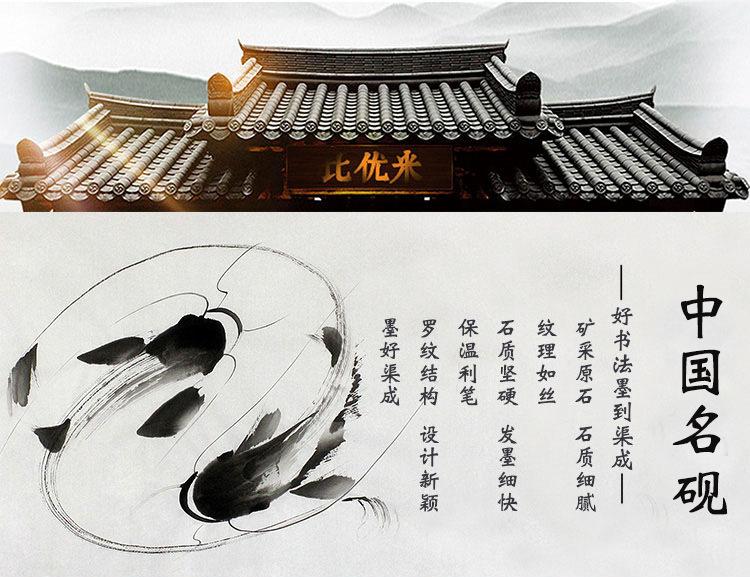 比优来
中国名砚
——好书法墨到渠成——
矿采原石 石质细腻
纹理如丝
石质坚硬 发墨细快
保温利笔
罗纹结构 设计新颖
墨好渠成